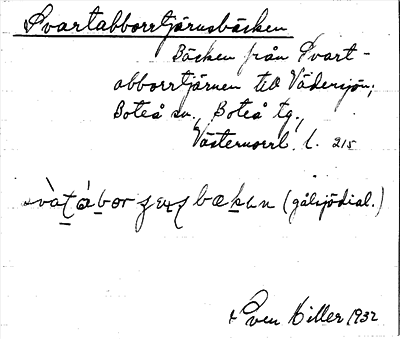 Svartabborrtjärnsbäcken
Bäcken från Svart-
abborrtjärnen till Vädersjön,
Boteå sn., Boteå tg.,
Västernorrl. l. 215
(gålsjödial.)
Sven Hiller 1932